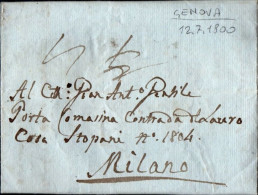 GENOVA
12.7.1800
Al Citt.º Gian Ant.º
Porta Comasina Contrada di Lauro
Casa Stopani Nº. 1804.
Milano